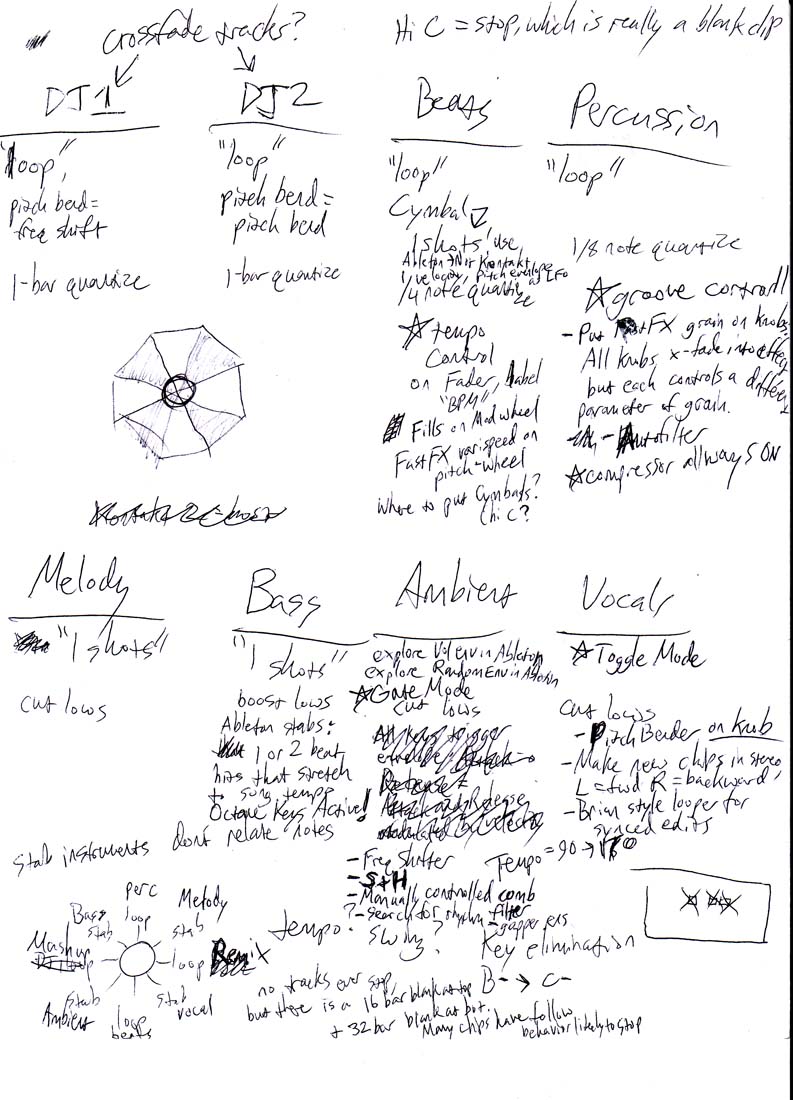 crossfade tracks?
Hi C = stop, which is really a blank clip
DJ1
"loop",
pitch bend =
freq shift
1-bar quantize
DJ2
"loop"
pitch bend =
pitch bend
1-bar quantize
Beats
"loop"
Cymbal
1 shots! use
Ableton Not Kontakt
1/velocity, pitch envelope LFO
1/4 note quantize
☆ tempo
control
on Fader, label
"BPM"
Fills on Modwheel
FastFX varispeed on
pitch-wheel
where to put Cymbals?
(hi C?
Percussion
"loop"
1/8 note quantize
☆groove controll
- Put FastFX grain on knobs.
All knobs x-fade into effect,
but each controls a different
parameter of grain.
- Autofilter
☆compressor allways ON
Melody
"1 shots"
cut lows
stab instruments
Bass
"1 shots"
boost lows
Ableton stabs:
1 or 2 beat
hits that stretch
to song tempo
Octave Keys Active!
Don't relate notes
Ambient
explore Vol env in Ableton
explore Random Env in Ableton
☆Gate Mode
cut lows
All keys trigger
envelope
- Freq shifter
- S+H
- Manually controlled comb
filter
?- search for rhythm
- gappers
Vocals
☆Toggle Mode
cut lows
- Pitch Bender on knob
- Make new clips in stereo,
L = fwd R = backward,
- Brian style looper for
synced edits
Tempo = 90 →
tempo?
swing?
Key elimination
B- → C-
perc
loop
Melody
stab
loop
Remix
stab
vocal
loop
beats
stab
Ambient
Mashup
loop
Bass
stab
no tracks ever stop,
but there is a 16 bar blank at top
+ 32 bar blank at bot.
Many clips have follow
behavior likely to stop